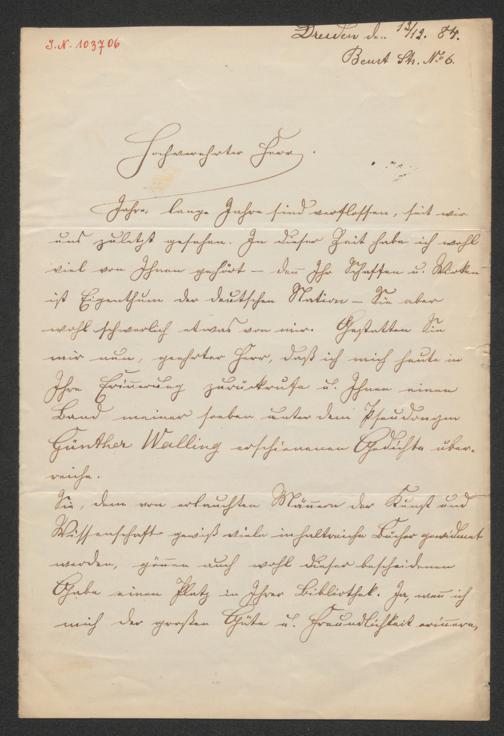 J.N. 103706
Dresden den 13/12. 84.
Beust Str. No 6.
Hochverehrter Herr,
Jahre, lange Jahre sind verflossen, seit wir
uns zuletzt gesehen. In dieser Zeit habe ich wohl
viel von Ihnen gehört – denn Ihr Schaffen u. Wirken
ist Eigenthum der deutschen Nation – Sie aber
wohl schwerlich etwas von mir. Gestatten Sie
mir nun, geehrter Herr, daß ich mich heute in
Ihre Erinnerung zurückrufe u. Ihnen einen
Band meiner soeben unter dem Pseudonym
Günther Walling erschienenen Gedichte über-
reiche.
Sie, dem von erlauchten Männern der Kunst und
Wissenschaft gewiß viele inhaltreiche Bücher gewidmet
werden, gönnen auch wohl dieser bescheidenen
Gabe einen Platz in Ihrer Bibliothek. Ja, wenn ich
mich der großen Güte u. Freundlichkeit erinnere,